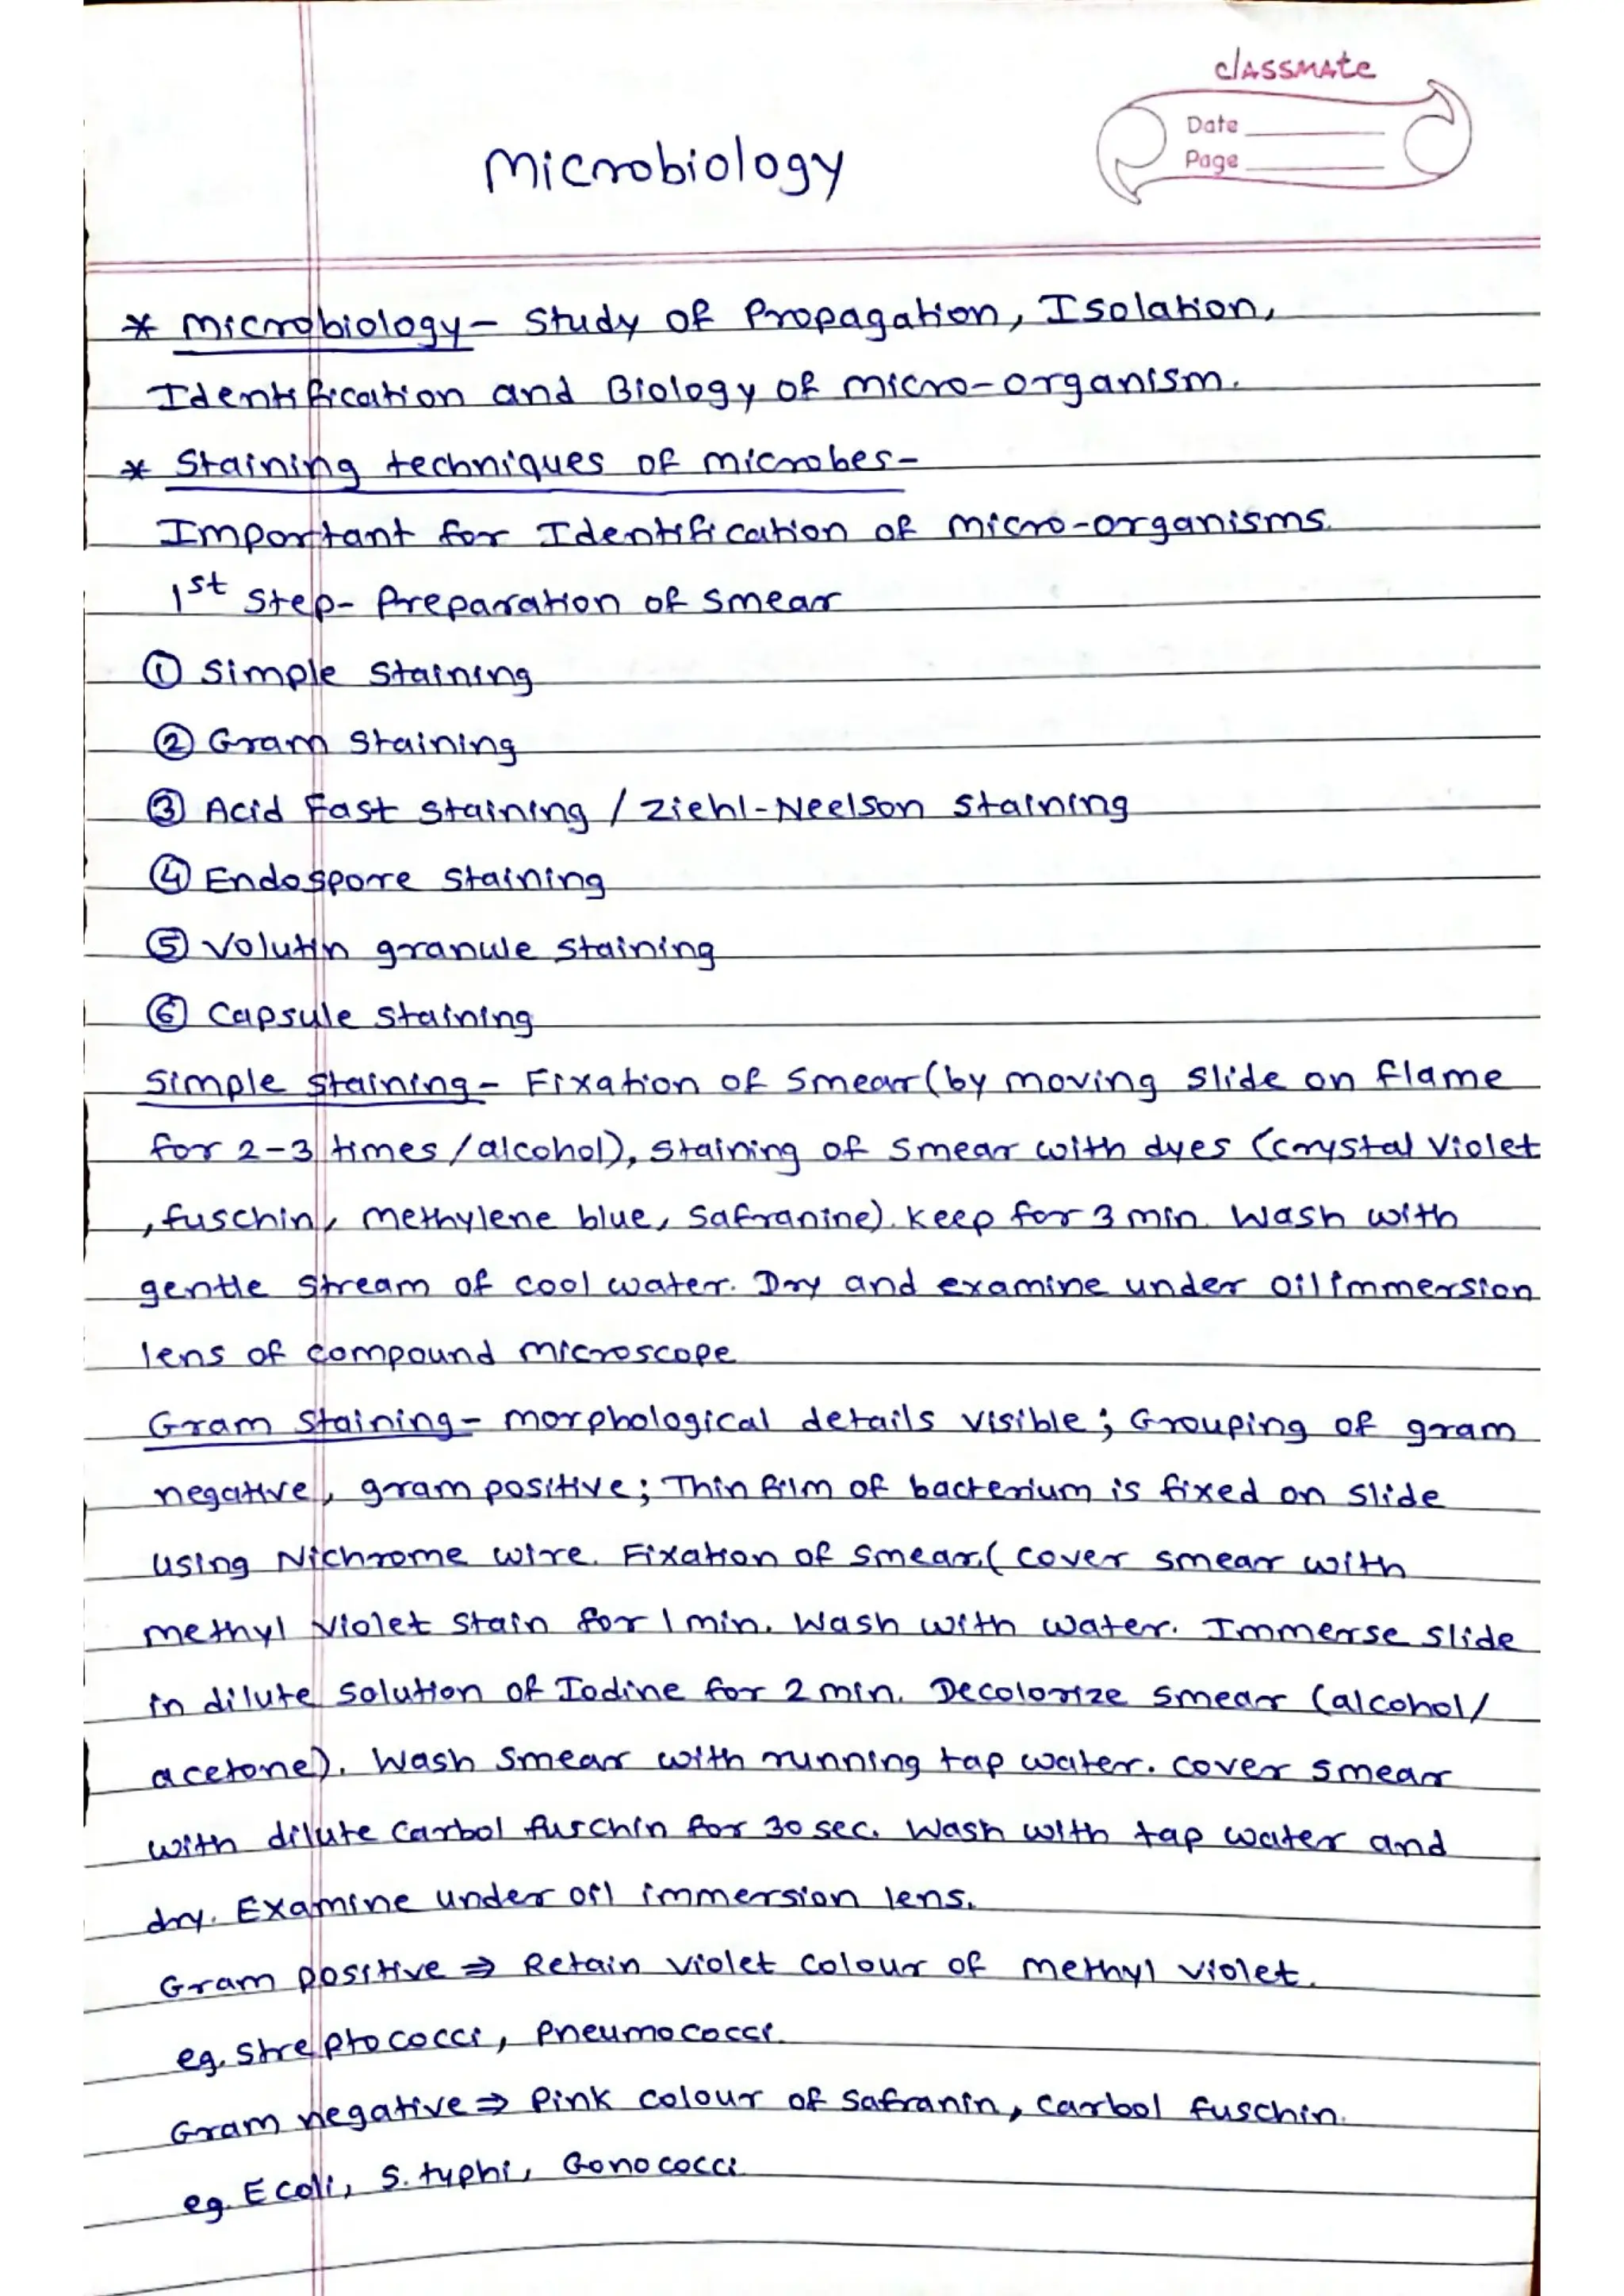 classmate
Date
Page
Microbiology
* Microbiology - Study of Propagation, Isolation,
Identification and Biology of micro-organism.
* Staining techniques of microbes-
Important for Identification of micro-organisms.
1st Step- Preparation of smear
① Simple Staining
② Gram Staining
③ Acid Fast Staining / Ziehl-Neelson Staining
④ Endospore Staining
⑤ Volutin granule staining
⑥ Capsule staining
Simple staining - Fixation of smear (by moving slide on flame
for 2-3 times/alcohol), staining of smear with dyes (crystal violet
, fuschin, methylene blue, safranine). Keep for 3 min. Wash with
gentle stream of cool water. Dry and examine under oil immersion
lens of compound microscope
Gram Staining - morphological details visible; Grouping of gram
negative, gram positive; Thin film of bacterium is fixed on slide
using Nichrome wire. Fixation of smear.( cover smear with
methyl violet stain for 1 min. Wash with water. Immerse slide
in dilute solution of Iodine for 2 min. Decolorize smear (alcohol/
acetone). Wash smear with running tap water. cover smear
with dilute carbol fuschin for 30 sec. Wash with tap water and
dry. Examine under oil immersion lens.
Gram positive ⇒ Retain violet colour of methyl violet.
eg. streptococci, Pneumococci.
Gram negative ⇒ Pink colour of safranin, carbol fuschin.
eg. E coli, S. typhi, Gonococci